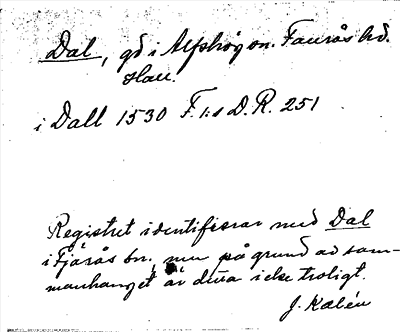 Dal, gd i Alfshög sn. Faurås hd.
Hall.
i Dall 1530 F. I:s D.R. 251
Registret identifierar med Dal
i Fjärås sn, men på grund av sam-
manhanget är detta icke troligt.
J. Kalén